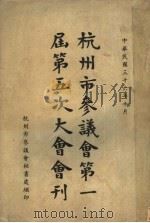 中華民國三十年十月
杭州市參議會第一
屆第五次大會會刊
杭州市參議會秘書處編印